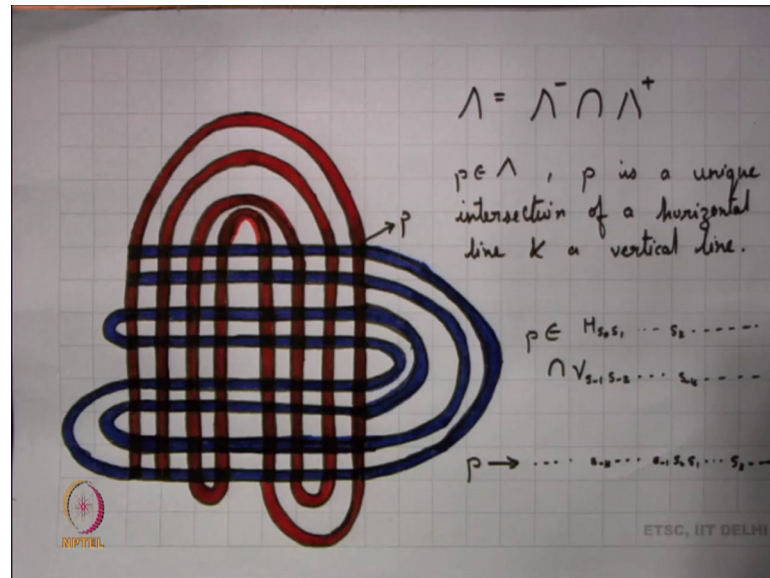 Λ = Λ⁻ ∩ Λ⁺
p ∈ Λ , p is a unique
intersection of a horizontal
line & a vertical line.
p
p ∈ H_{s₀s₁ ··· s_k ------}
∩ V_{s₋₁s₋₂ ··· s₋ₖ -----}
p → ···· s₋ₖ ··· s₋₁ s₀ s₁ ··· s_k ---
ETSC, IIT DELHI
NPTEL